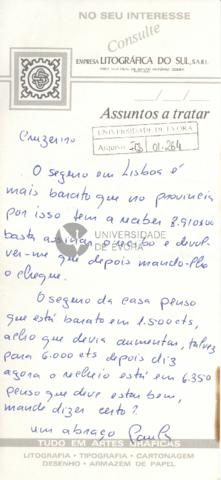 NO SEU INTERESSE
Consulte
EMPRESA LITOGRÁFICA DO SUL, S.A.R.L.
Assuntos a tratar
UNIVERSIDADE DE ÉVORA
Arquivo
Cruzeiro
O seguro em Lisboa é
mais barato que na provincia
por isso tem a receber 8.910$00
basta assinar o recibo e devol-
ver-me que depois mando-lhe
o cheque.
UNIVERSIDADE
DE ÉVORA
O seguro da casa penso
que está barato em 1.500cts,
acho que devia aumentar, talvez
para 6.000 cts depois diz
agora o recheio está em 6.350
penso que deve estar bem,
mande dizer certo?
um abraço Paulo
TUDO EM ARTES GRÁFICAS
LITOGRAFIA • TIPOGRAFIA • CARTONAGEM
DESENHO • ARMAZEM DE PAPEL